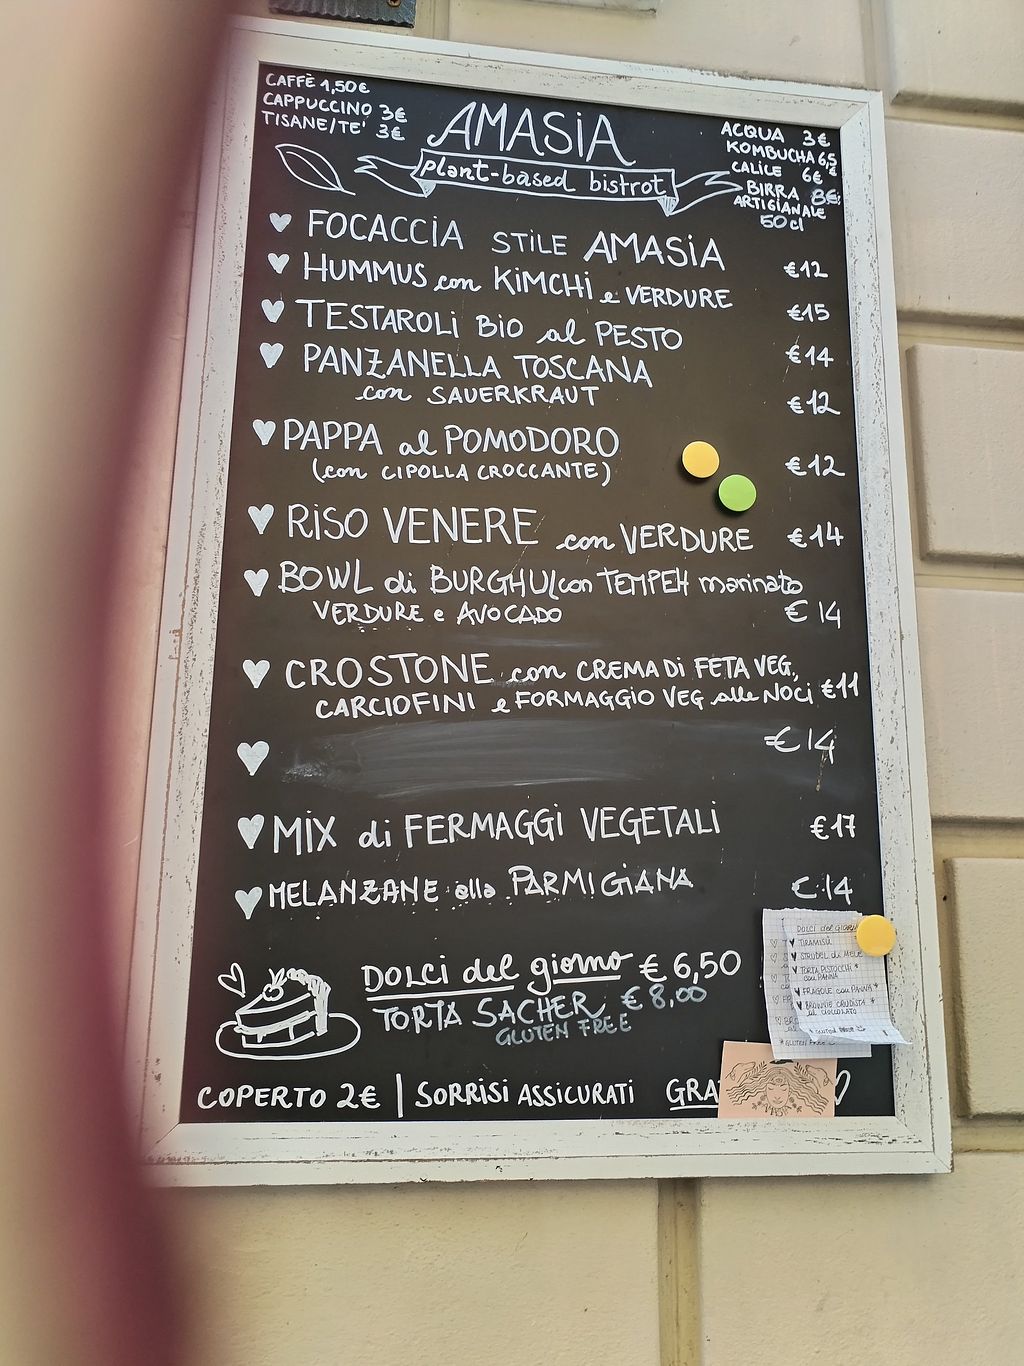 CAFFÈ 1,50€
CAPPUCCINO 3€
TISANE/TE' 3€
AMASiA
plant-based bistrot
ACQUA 3€
KOMBUCHA 6,5
CALICE 6€
BIRRA 8€
ARTIGIANALE
50 cl
FOCACCIA STILE AMASiA €12
HUMMUS con KiMCHi e VERDURE €15
TESTAROLi BiO al PESTO €14
PANZANELLA TOSCANA
con SAUERKRAUT €12
PAPPA al POMODORO
(con CIPOLLA CROCCANTE) €12
RISO VENERE con VERDURE €14
BOWL di BURGHUL con TEMPEH marinato
VERDURE e AVOCADO €14
CROSTONE con CREMA Di FETA VEG,
CARCIOFINI e FORMAGGIO VEG alle NOCi €11
€14
MIX di FERMAGGi VEGETALI €17
MELANZANE alla PARMIGIANA €14
DOLCI del giorno €6,50
TORTA SACHER €8,00
GLUTEN FREE
DOLCI del
TIRAMISÙ
STRUDEL di MELE
TORTA PISTOCCHI *
con PANNA
FRAGOLE con PANNA *
BROWNIE CRUDISTA *
al CIOCCOLATO
COPERTO 2€ | SORRISI ASSICURATI